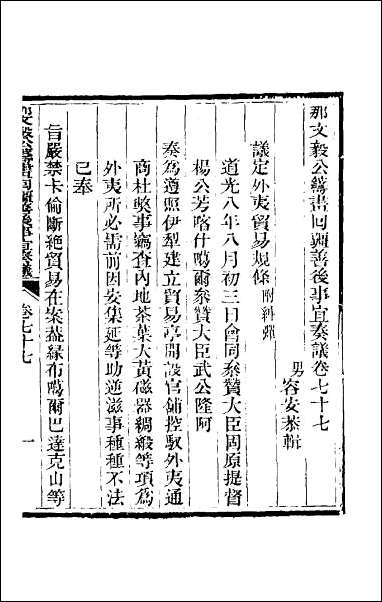 那文毅公籌畫回疆善後事宜奏議卷七十七
男容安恭輯
議定外夷貿易規條附糾彈
道光八年八月初三日會同叅贊大臣固原提督
楊公芳喀什噶爾叅贊大臣武公隆阿
奏爲遵照伊犂建立貿易亭開設官舖控馭外夷通
商杜獘事竊查內地茶葉大黃磁器綢緞等項爲
外夷所必需前因安集延等助逆滋事種種不法
已奉
旨嚴禁卡倫斷絶貿易在案茲緣布噶爾巴達克山等
卷七十七
一